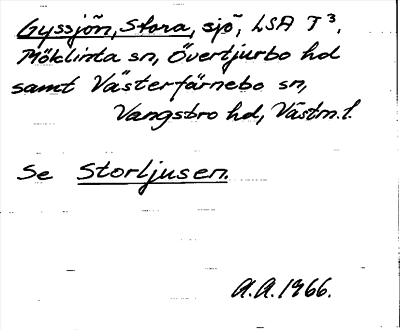 Gyssjön, Stora, sjö, LSA T³.
Möklinta sn, Övertjurbo hd
samt Västerfärnebo sn,
Vangsbro hd, Västm.l.
Se Storljusen.
A.A. 1966.